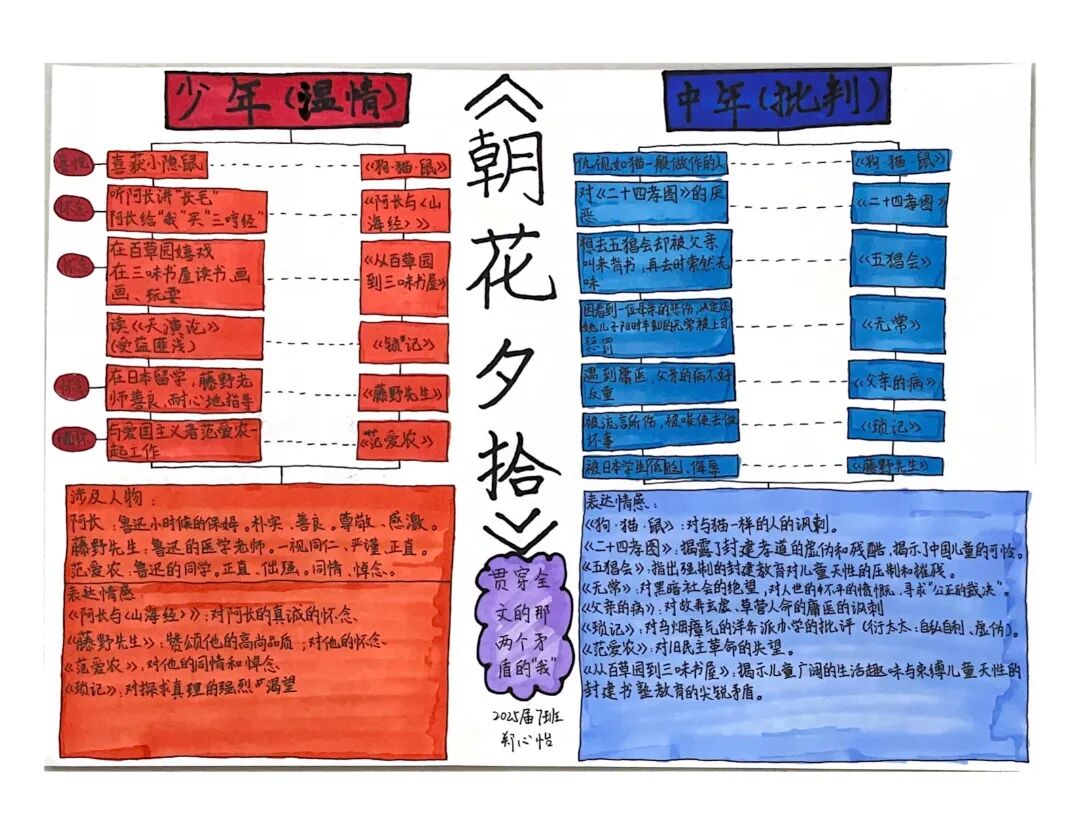 少年(温情)
喜悦
喜获小隐鼠
《狗·猫·鼠》
怀念
听阿长讲“长毛”
阿长给“我”买“三哼经”
《阿长与《山
海经》》
怀念
在百草园嬉戏
在三味书屋读书、画
画、玩耍
《从百草园
到三味书屋》
读《天演论》
(受益匪浅)
《琐记》
在日本留学，藤野老
师善良、耐心地指导
《藤野先生》
与爱国主义者范爱农一
起工作
《范爱农》
涉及人物：
阿长：鲁迅小时候的保姆。朴实、善良。尊敬、感激。
藤野先生：鲁迅的医学老师。一视同仁、严谨、正直。
范爱农：鲁迅的同学。正直、倔强。同情、悼念。
表达情感：
《阿长与《山海经》》：对阿长的真诚的怀念
《藤野先生》：赞颂他的高尚品质；对他的怀念
《范爱农》：对他的同情和悼念
《琐记》：对探求真理的强烈渴望
《朝花夕拾》
贯穿全
文的那
两个矛
盾的“我”
2025届7班
郑心怡
中年(批判)
仇视如猫一般做作的人
《狗·猫·鼠》
对《二十四孝图》的厌
恶
《二十四孝图》
想去五猖会却被父亲
叫来背书，再去时索然无
味
《五猖会》
因看到一位母亲的悲伤，决定还
她儿子阳时半刻的无常被上司
惩罚
《无常》
遇到庸医，父亲的病不好
反重
《父亲的病》
被流言所伤，被唆使去做
坏事
《琐记》
被日本学生侮辱
《藤野先生》
表达情感：
《狗·猫·鼠》：对与猫一样的人的讽刺。
《二十四孝图》：揭露了封建孝道的虚伪和残酷，揭示了中国儿童的可怜。
《五猖会》：指出强制的封建教育对儿童天性的压制和摧残。
《无常》：对黑暗社会的绝望，对人世的不平的愤慨、寻求“公正的裁决”。
《父亲的病》：对故弄玄虚、草菅人命的庸医的讽刺
《琐记》：对乌烟瘴气的洋务派办学的批评（衍太太：自私自利、虚伪）。
《范爱农》：对旧民主革命的失望。
《从百草园到三味书屋》：揭示儿童广阔的生活趣味与束缚儿童天性的
封建书塾教育的尖锐矛盾。